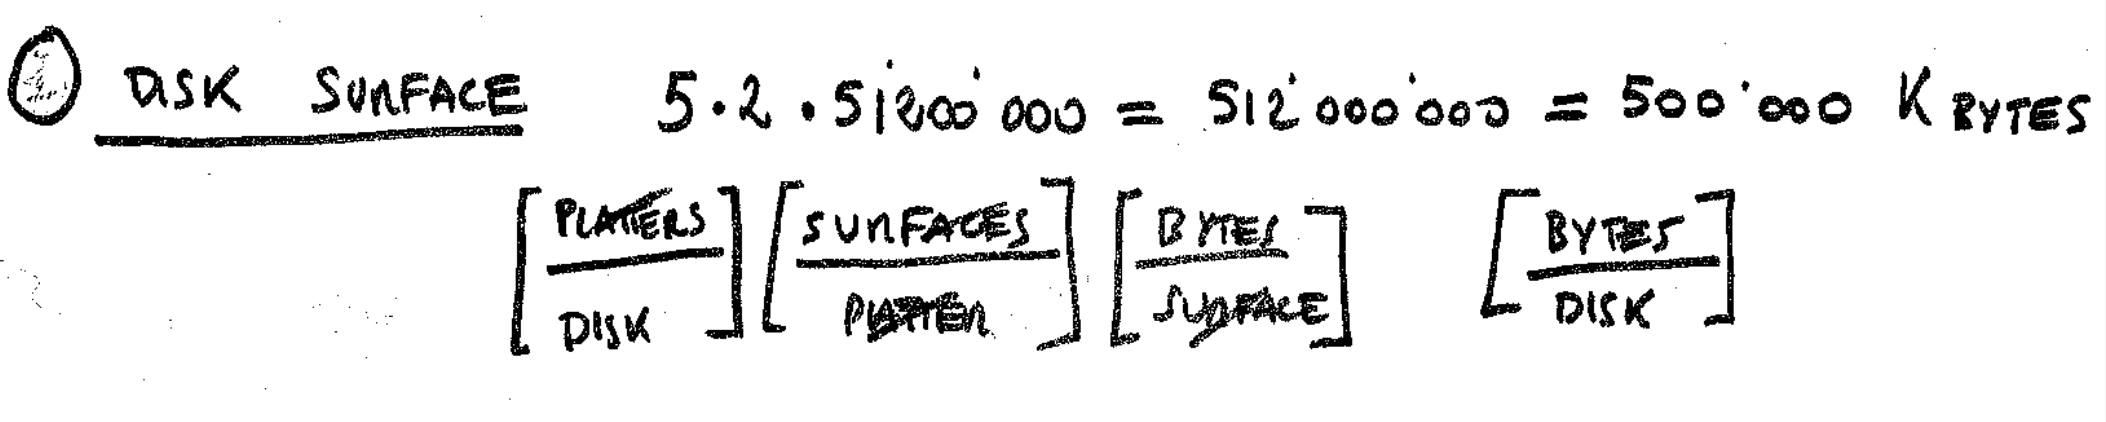 1 DISK SURFACE 5·2·51'200'000 = 512'000'000 = 500'000 K BYTES
[PLATTERS / DISK] [SURFACES / PLATTER] [BYTES / SURFACE] [BYTES / DISK]